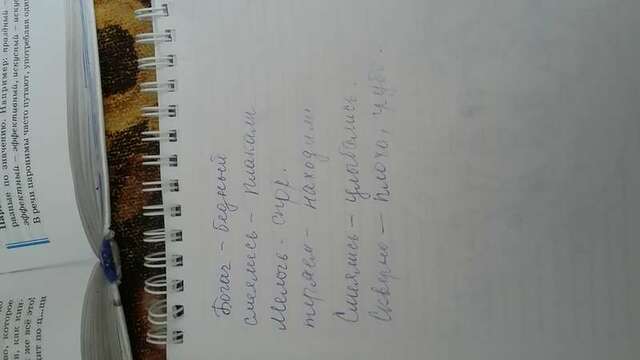 во, которое
в, как кин-
же всё это!
дит по ц...пи
разные по значению. Например: праздный –
эффектный – эффективный, искусный – искус
В речи паронимы часто путают, употребляя оди
Богач – бедный
смеялись – плакали
Мелочь -
теряем – находим
Смеялись – улыбались.
Скверно – плохо, грубо.